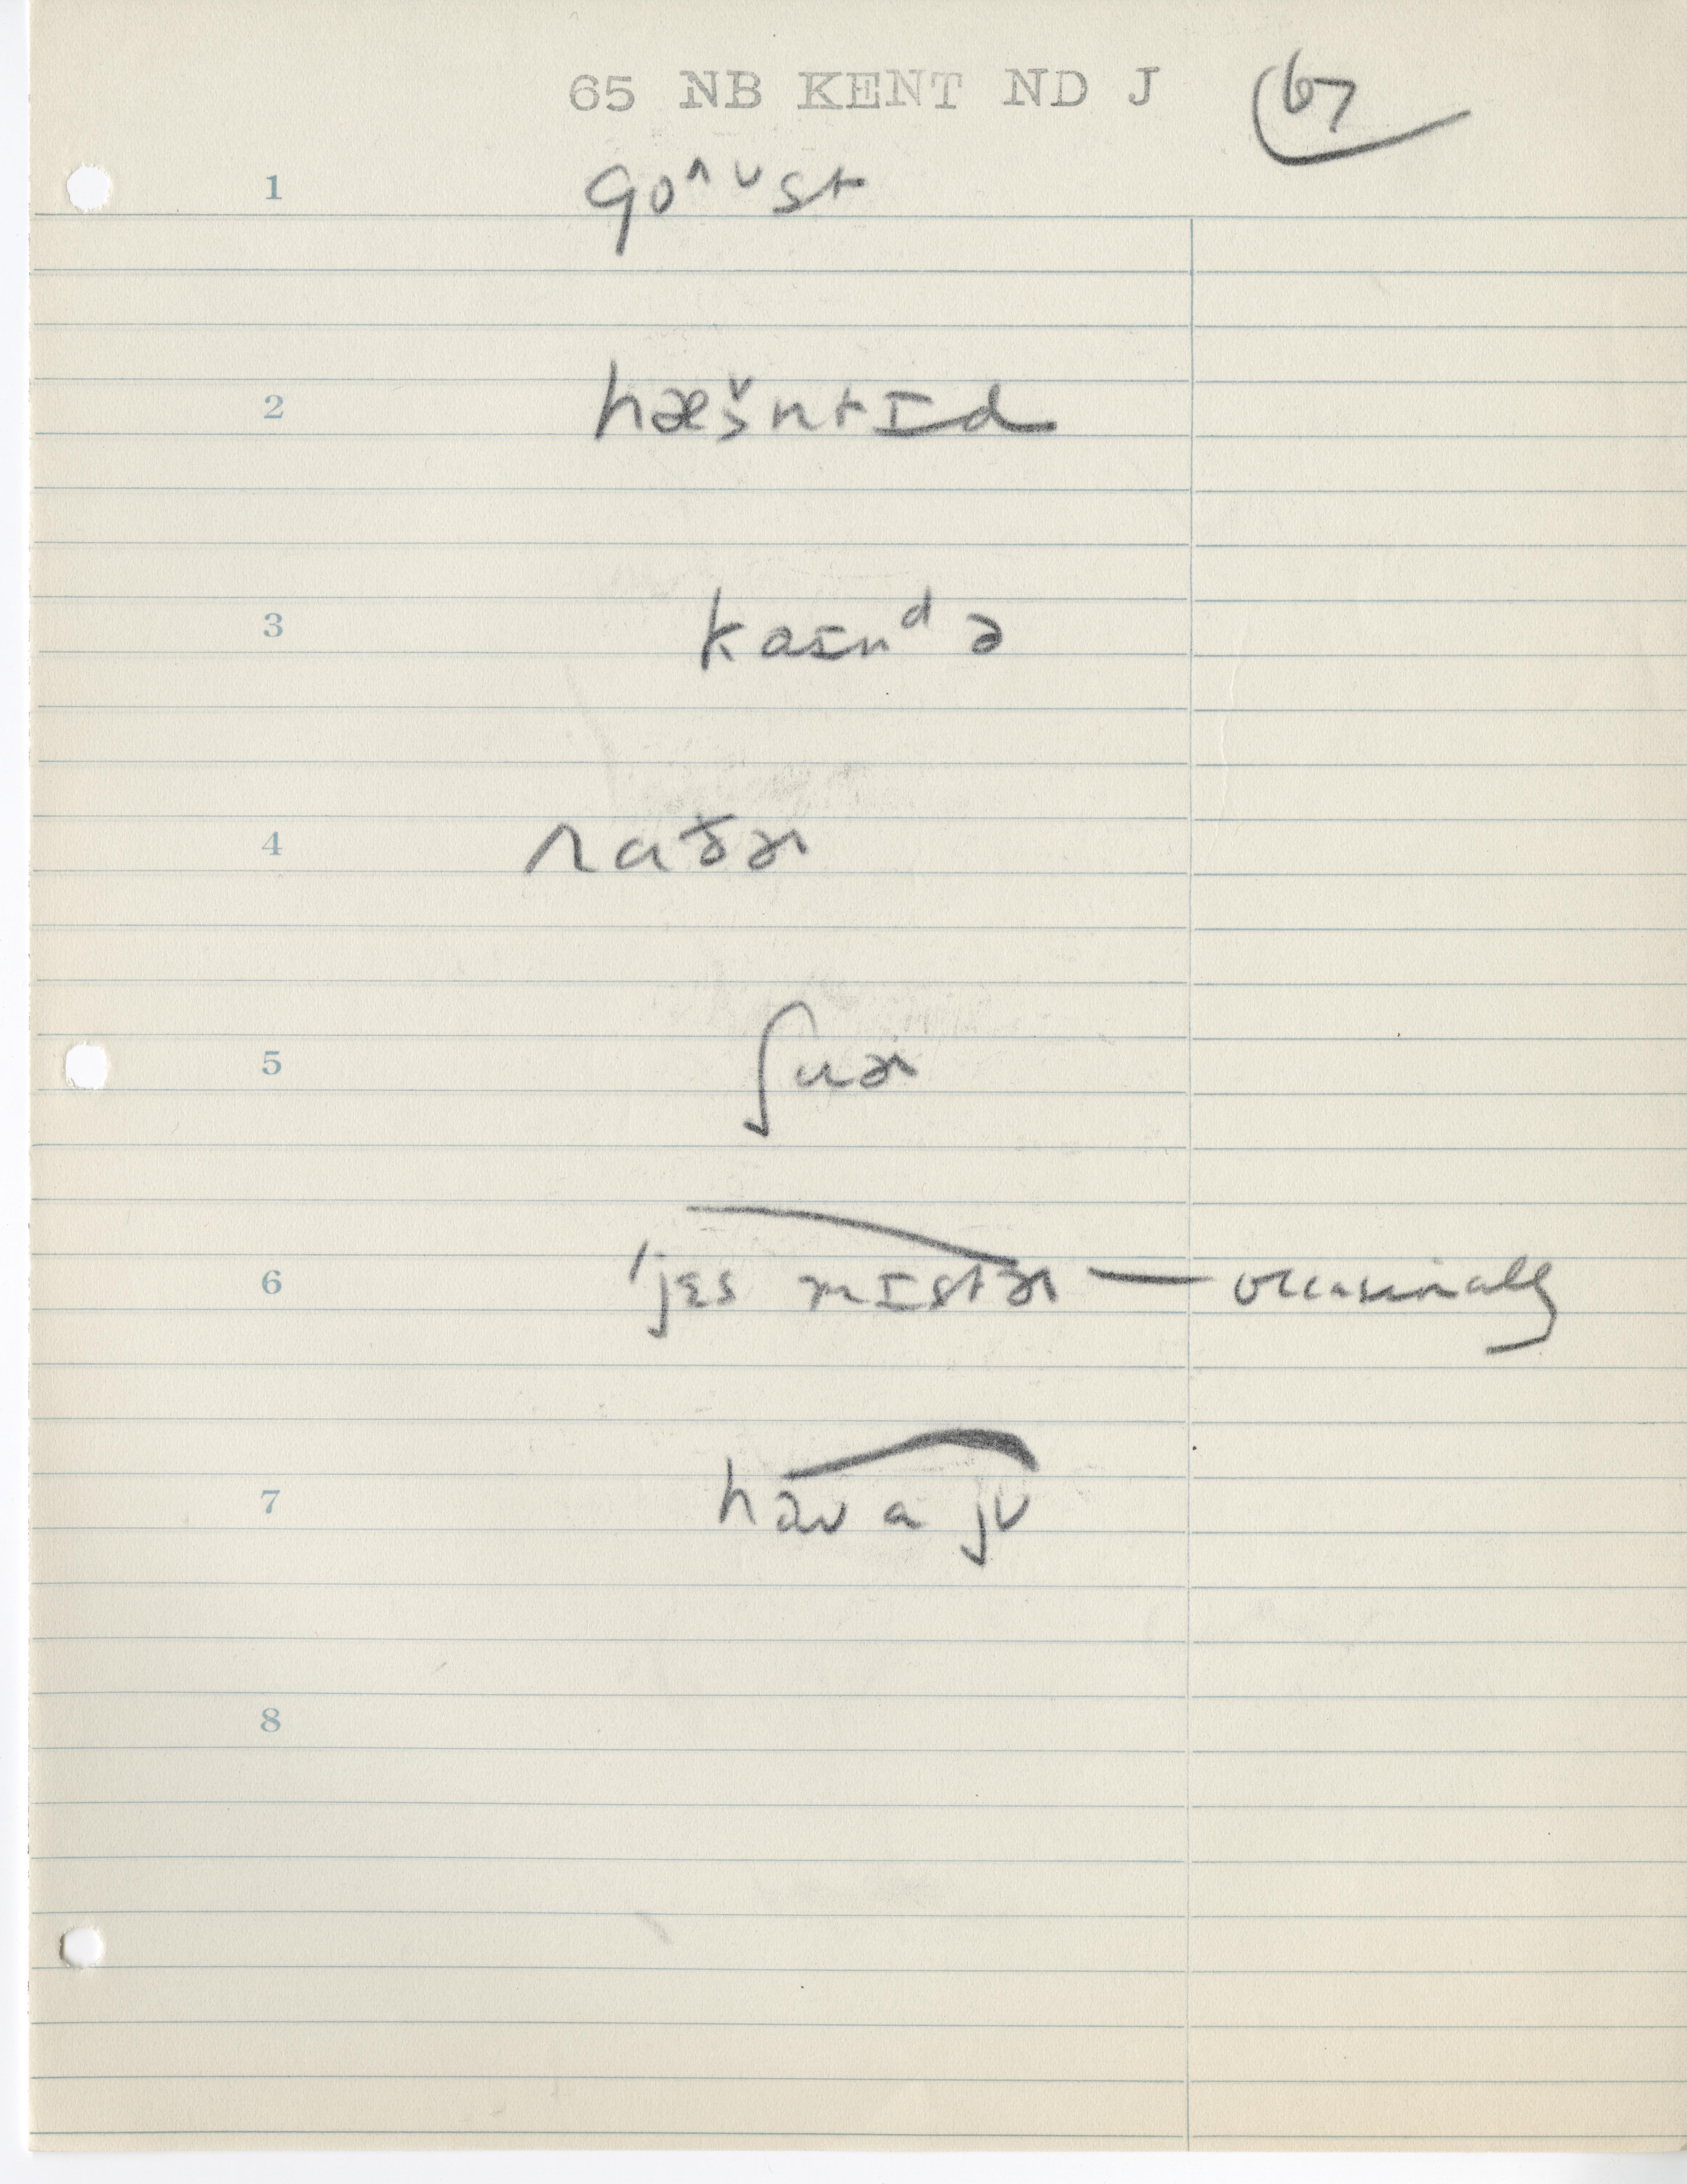 65 NB KENT ND J 67
1 go^ᴜst
2 hæṣ̌ntɪd
3 kaɪnᵈə
4 raðɚ
5 ʃuɚ
6 'jɛs mɪstɚ — occasionally
7 haʊ a jʊ
8